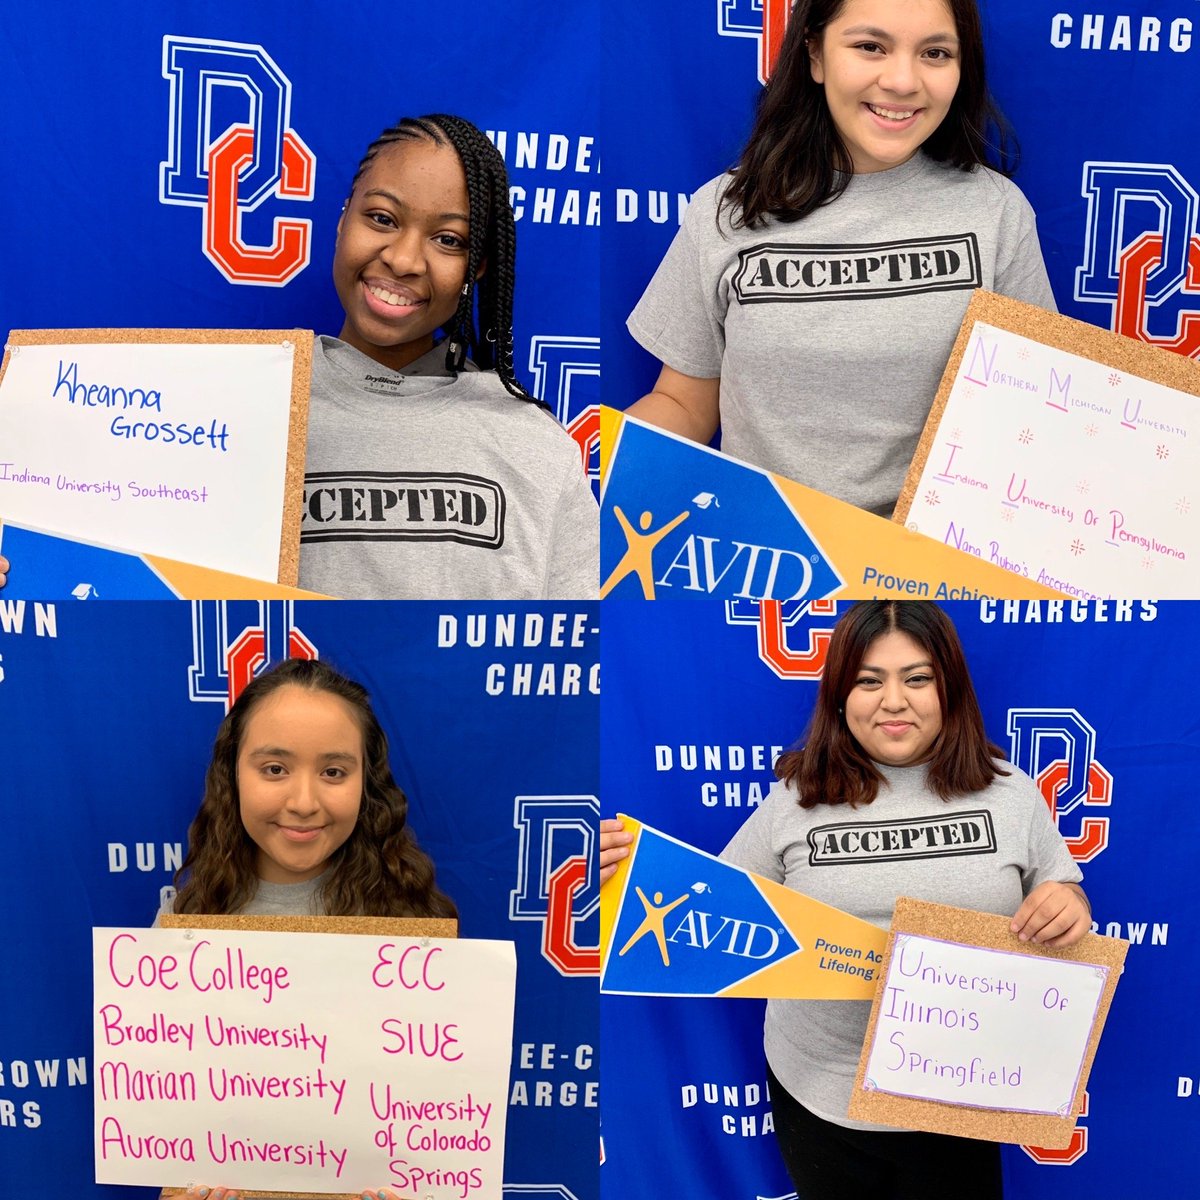 DC
UNDE
CHAR
Kheanna
Grossett
Indiana University Southeast
DryBlend
CCEPTED
CHARG
DUN
DC
ACCEPTED
Northern Michigan University
Indiana University Of Pennsylvania
Nana Rubio's
AVID®
Proven Achiev
ROWN
S
DUNDEE-
CHARG
DUN
DC
ROWN
ERS
DEE-C
ARGE
Coe College
Bradley University
Marian University
Aurora University
ECC
SIUE
University
of Colorado
Springs
CHARGERS
DUNDEE
CHA
DC
ACCEPTED
AVID®
Proven Ac
Lifelong
OWN
University Of
Illinois
Springfield
DUND
CHA